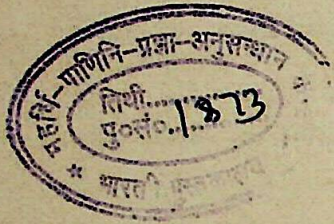 महर्षि-पाणिनि-प्रज्ञा-अनुसन्धान
तिथी..........
पु०सं०.1873
भारती